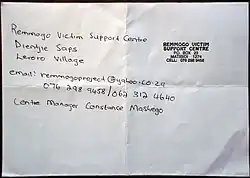 Remmogo Victim Support Centre
Dientjie Saps
Leroro Village
email: remmogoproject@yahoo.co.za
076 298 9458 / 067 312 4640
Centre Manager Constance Mashego
REMMOGO VICTIM
SUPPORT CENTRE
P.O. BOX 22
MATIBIDI 1274
CELL: 076 298 9458